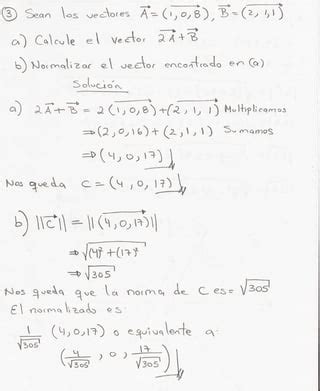 ③ Sean los vectores A⃗=(1,0,8), B⃗=(2,1,1)
a) Calcule el vector 2A⃗+B⃗
b) Normalizar el vector encontrado en (a)
Solución
a) 2A⃗+B⃗ = 2(1,0,8)+(2,1,1) Multiplicamos
⇒(2,0,16)+(2,1,1) Sumamos
⇒(4,0,17)
Nos queda C=(4,0,17)
b) ||C⃗|| = ||(4,0,17)||
⇒√(4)²+(17)²
⇒√305
Nos queda que la norma de C es=√305
El normalizado es:
1/√305 (4,0,17) o equivalente a:
(4/√305, 0, 17/√305)